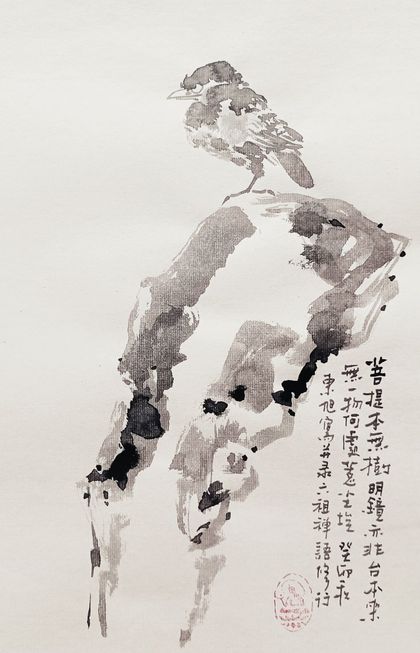 菩提本無樹明鏡亦非台本來
無一物何處惹尘埃 癸卯秋
東旭寫并录六祖禅語修行